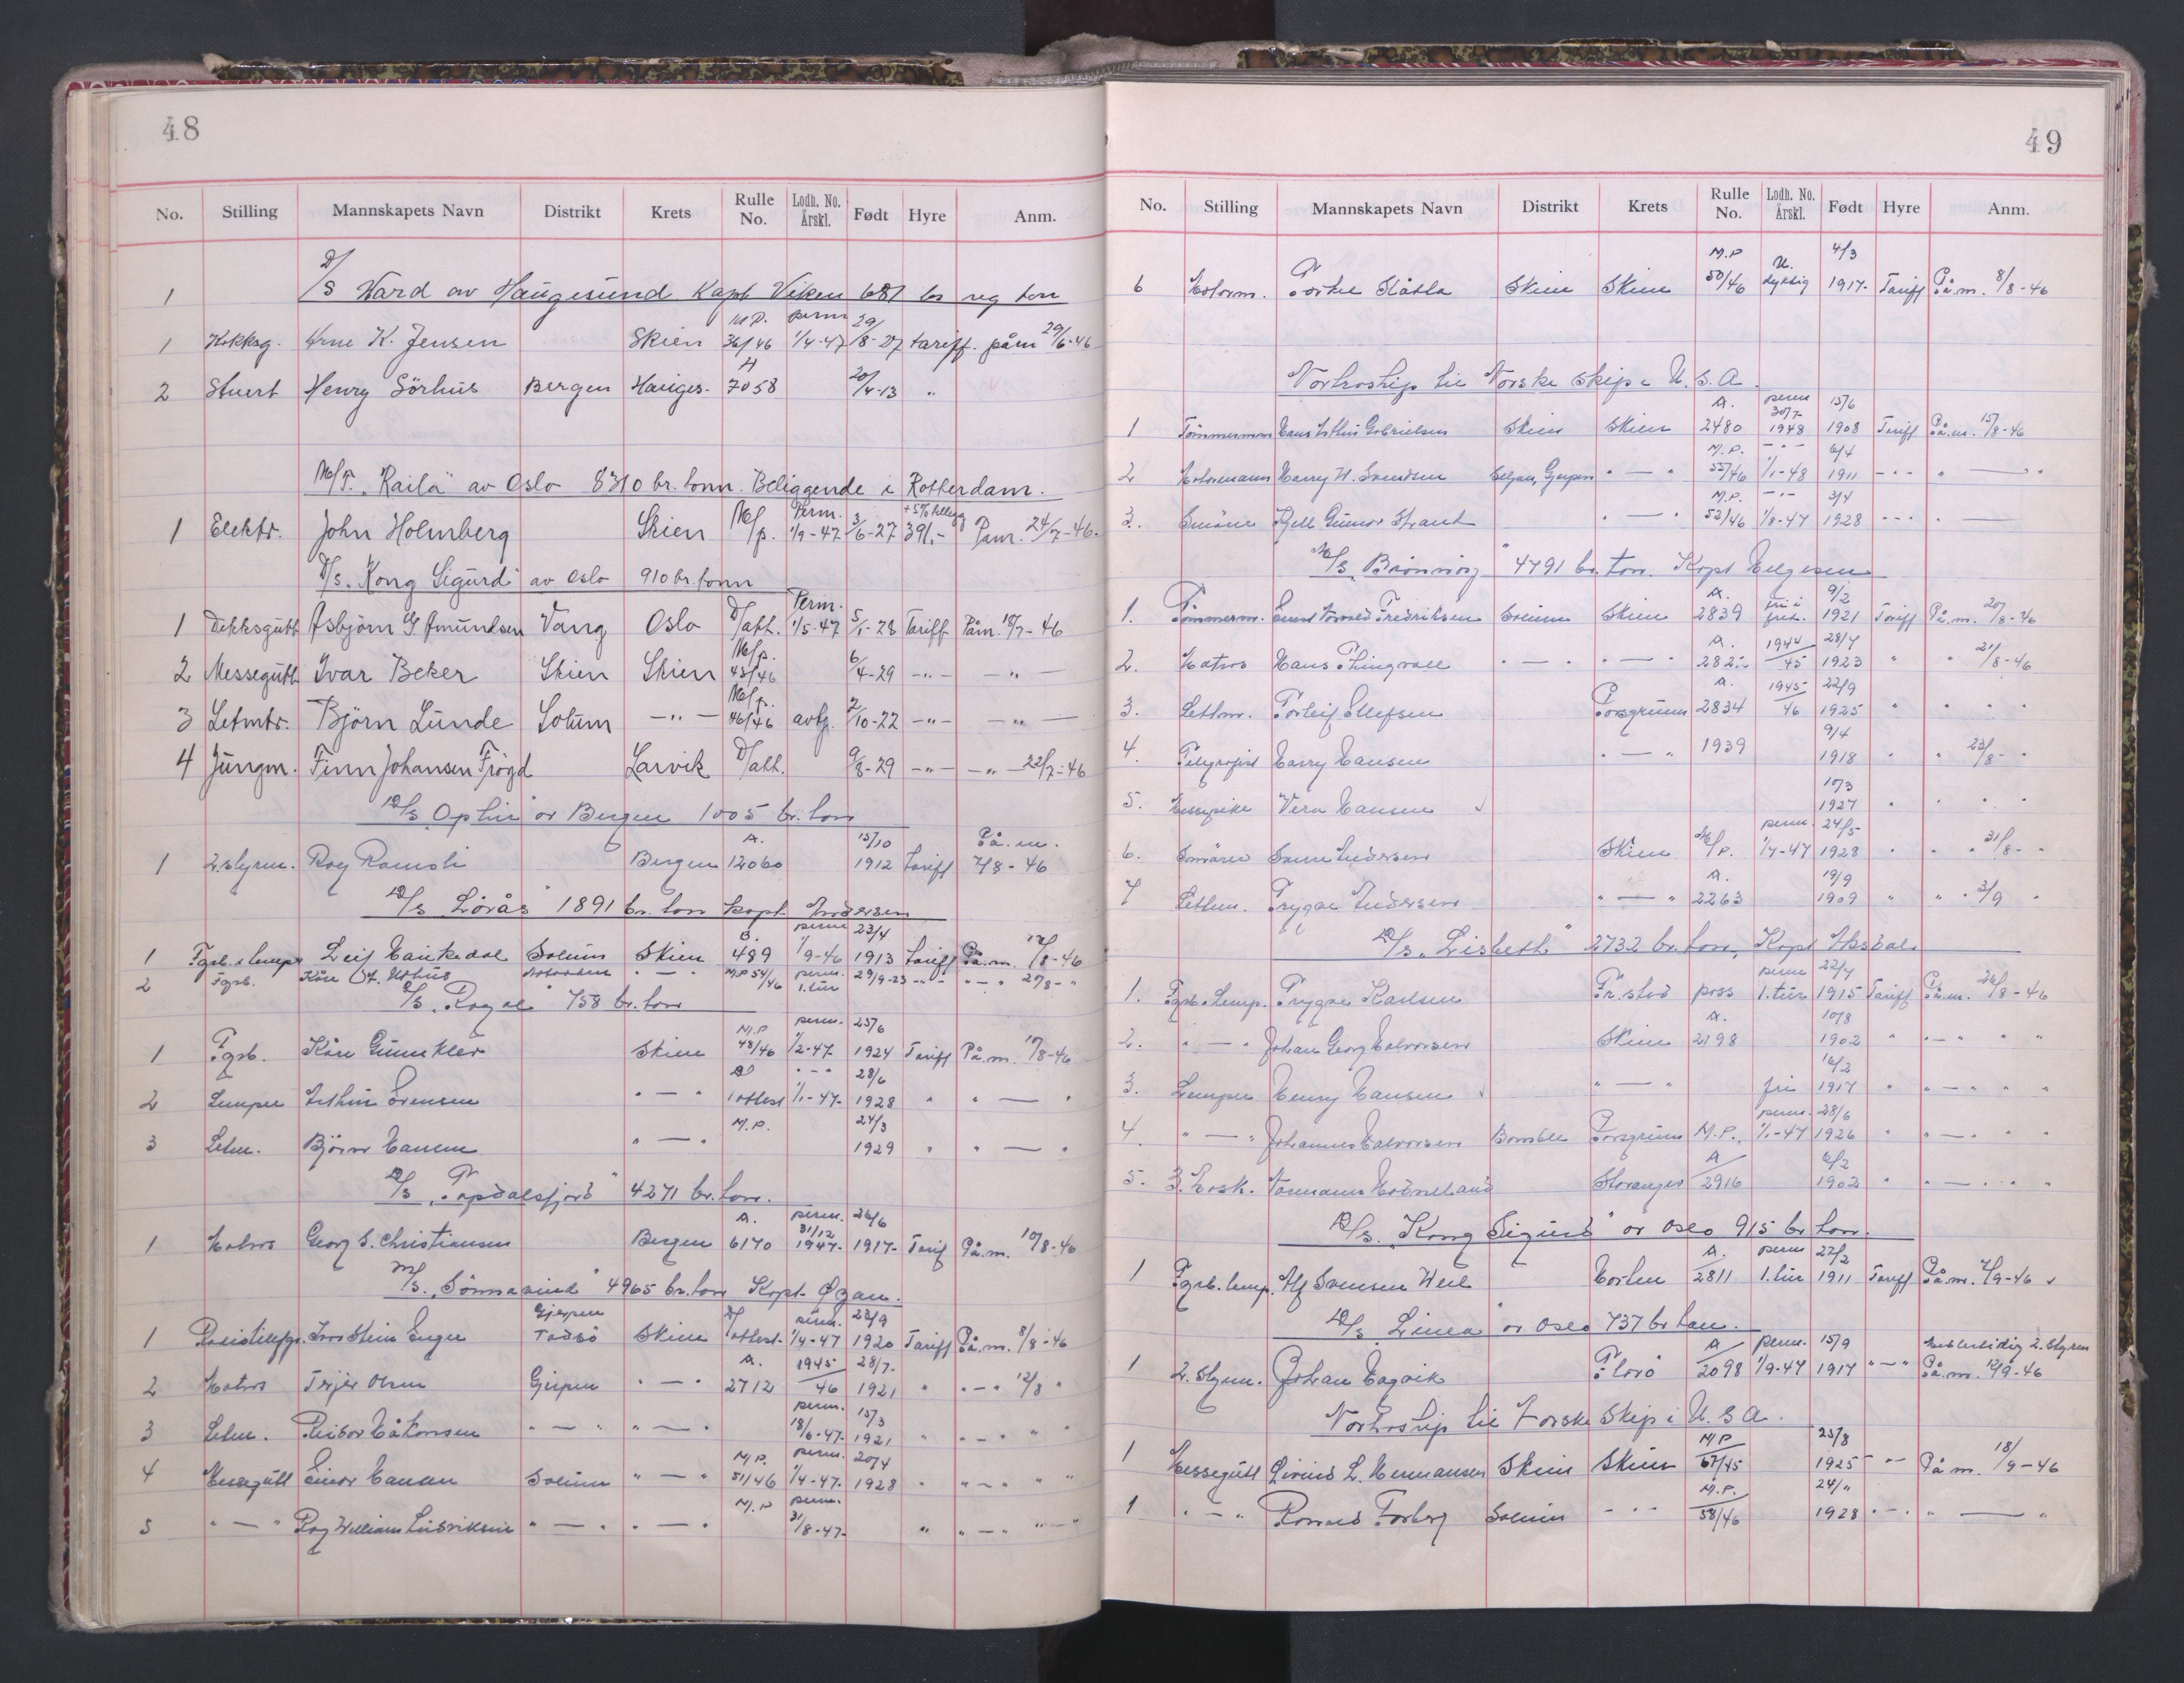 48
No. Stilling Mannskapets Navn Distrikt Krets Rulle No. Lodh. No. Årskl. Født Hyre Anm.
1 D/S Vard av Haugesund Kapt Viken 681 br reg ton
1 Kokksg. Arne K. Jensen Skien M.P. 36/46 perm 1/4-47 29/8-27 tariff påm 29/6-46
2 Stuert Henry Sörhus Bergen Hauges. A 7058 20/4-13 "
M/T. "Kaila" av Oslo 8310 br. tonn. Beliggende i Rotterdam.
1 Elektr. John Holmberg Skien M/p. Perm. 1/9-47 3/6-27 + 5% tillegg 391,- Påm. 24/7-46.
D/s. "Kong Sigurd" av Oslo 910 br. tonn
1 Dekksgutt Asbjörn G Amundsen Vang Oslo D/att. Perm. 1/5-47 5/1-28 Tariff Påm. 18/7-46
2 Messegutt Ivar Beker Skien Skien M/p. 45/46 6/4-29 -"- -"-
3 Letmtr. Björn Lunde Solum -"- M/p. 46/46 avtj. 2/10-22 -"- -"-
4 Jungm. Finn Johansen Frögd Larvik D/att. 9/8-29 -"- -"- 22/7-46
D/s Ophir av Bergen 1005 br. ton
1 2. styrm. Roy Ramsli Bergen A. 12060 15/10 1912 tariff På.m. 7/8-46
D/s Lörås" 1891 br. ton kapt Andersen
1 Fyrb. Lemper Leif Haukedal Solum Skien B. 489 perm 1/9-46 23/4 1913 tariff På.m. 12/8-46
2 Fyrb. Kåre "-" M.P 54/46 perm. 1. tur 29/9-23 -"- "-" 27/8-"
D/s. "Rogal" 758 br. ton
1 Fyrb. Kåre Gunnkler Skien M.P 48/46 perm. 1/2-47- 25/6 1924 Tariff På.m. 10/8-46
2 Lemper Arthur Sörensen "-" D/ attest "-" 1/1-47- 28/6 1928 " "-"
3 Letm. Björn Hansen "-" M.P. 24/3 1929 " "-"
D/s. "Topdalsfjord" 4271 br. ton.
1 Matros Georg S. Christiansen Bergen A. 6170 perm. 31/12 1947- 26/6 1917- Tarif På.m. 10/8-46
M/s. "Sönnavind" 4965 br. ton Kapt. Øgan.
1 Skien D/ attest. perm. 1/4-47 23/9 1920 Tariff På.m. 8/8-46
2 Matros Terjer Olsen Gjerpen "-" A. 2712 1945/46 28/7. 1921 " "-" 12/8 "
3 Letm. Reidar Håkonsen "-" "-" perm. 18/6-47- 15/3 1921 " "-" " "
4 Messegutt Einar Hansen Solum "-" M.P. 51/46 perm. 1/4-47- 20/4 1928 " "-" " "
5 "-" Roy William Ludviksen "-" "-" M.P perm. 31/8-47- " "-" "-"
49
No. Stilling Mannskapets Navn Distrikt Krets Rulle No. Lodh. No. Årskl. Født Hyre Anm.
6 Motorm. Torke Slåtta Skien Skien M.P 50/46 U. dyktig 4/3 1917- Tariff På.m. 8/8-46
Nortraship til Norske skip i U.S.A.
1 Tömmermann Hans Arthur Gabrielsen Skien Skien A. 2480 perm 30/7- 1948 15/6 1908 Tariff På.m. 15/8-46
2 Motormann Harry W. Svendsen Gjerpen "-" M.P. 55/46 -"- 1/1-48 6/4 1911 -"- "-"
3. Smörer Kjell Gunnar Strand "-" M.P. 52/46 -"- 1/8-47 3/4 1928 -"- "-
M/s. Brönnöy" 4791 br. ton. Kapt Helgesen
1. Tömmerm. Fredriksen Solum Skien A. 2839 9/2 1921 Tariff På.m. 20/8-46
2. Matros Hans Thingvall "-" "-" A. 1944/45 28/7 1923 " " 21/8-46
3. Lettm. Torleif Ellefsen Porsgrunn A. 2834 1945/46 22/9 1925 " " "
4. Telegrafist Harry Hansen "-" 1939 9/4 1918 " " 23/8-"
5. Messepike Vera Hansen 10/3 1927 " " "
6. Smörer Andersen Skien M/P. perm. 1/7-47 24/5 1928 " " 31/8-"
7 Lettm. Trygve Andersen "-" A. 2263 19/9 1909 " " " 3/9 "
D/s. "Lisbeth" 2732 br. ton, Kapt Aksdal
1. Fyrb. Lemp. Trygve Karlsen Fr. stad pass perm 1. tur 22/7 1915 Tariff På.m. 26/8-46
2. "-" Johan Georg Halvorsen Skien A. 2198 10/8 1902 " "-" " "
3. Lemper Henry Hansen "-" fri 16/2 1917 " "-" " "
4. "-" Johannes Halvorsen Bamble Porsgrunn M.P. perm. 1/1-47 28/6 1926 " "-" " "
5. 3. Mask. Stavanger A 2916 6/2 1902 " "-" " "
D/s. "Kong Sigurd" av Oslo 915 br ton.
1 Fyrb. lemp. Alf Svensen Weel Horten A. 2811 perm 1. tur 27/2 1911 Tariff På.m. 7/9-46
D/s "Linea" av Oslo 737 br ton.
1 2. styrm. Johan Hagvik Florö A 2098 perm. 1/9-47 15/9 1917 "-" Midlertidig 2. Styrm På.m. 12/9-46
Nortraship til Norske Skip i U.S.A.
1 Messegutt Sivius L. Hermansen Skien Skien M/P 67/45 25/8 1925 -"- På.m. 18/9-46
1 "-" Ronald Forberg Solum -"- M.P. 58/46 24/11 1928 "-" "-"